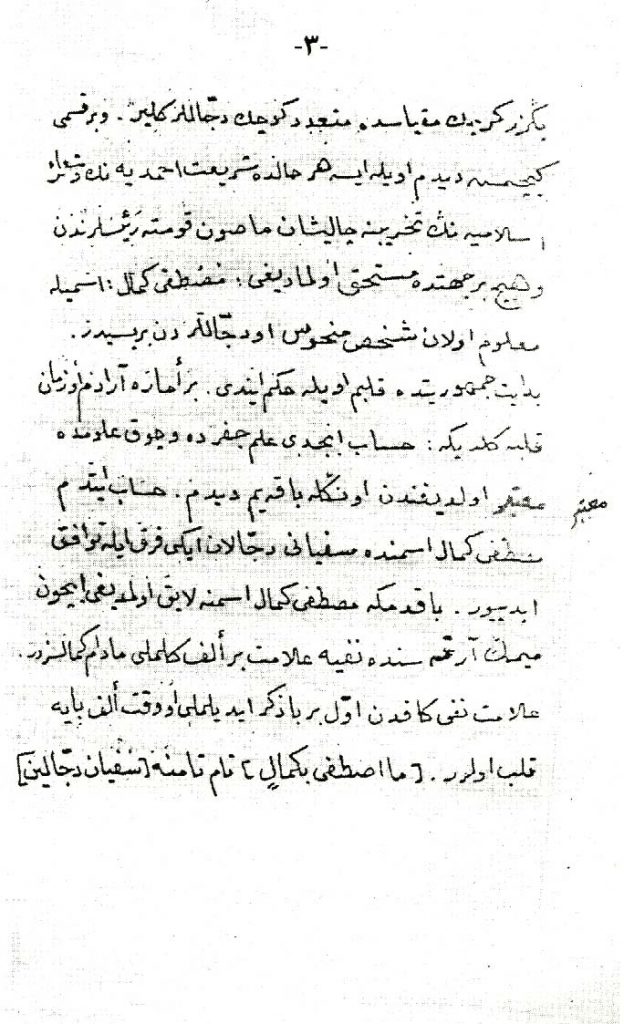 -٣-
بڭزر كريدڭ مقياسده متعدد كوچك دجّاللر كلير . وبر قسمى
كيچمش ديدم اويله ايسه هر حالده شريعت احمديه نڭ وشعائر
اسلاميه نڭ تخريبنه چاليشان ماصون قومته رئيسلرندن
وهيچ بر جهتده مستحق اولماديغى ؛ مصطفى كمال ؛ اسميله
معلوم اولان شخص منحوس او دجّاللردن بريسيدر .
بدايت جمهوريتده قلبم اويله حكم ايتدى . بر أماره آرادم او زمان
قلبه كلديكه : حساب ابجدى علم جفرده وچوق علومده
معتبر اولديغندن اونڭله باقه يم ديدم . حساب ايتدم
معتبر
مصطفى كمال اسمنده سفيانى دجالان ايكى فرق ايله توافق
ايدييور . باقدمكه مصطفى كمال اسمنه لايق اولمديغى ايچون
ميمڭ آرقه سنده نفيه علامت بر ألف كلملى مادام كمالسزدر .
علامت نفى كافدن اوّل بر با ذكر ايديلملى او وقت ألف يايه
قلب اولور . [ ما اصطفى بكمالٍ ] تام تامنه [سفيان دجّالين]